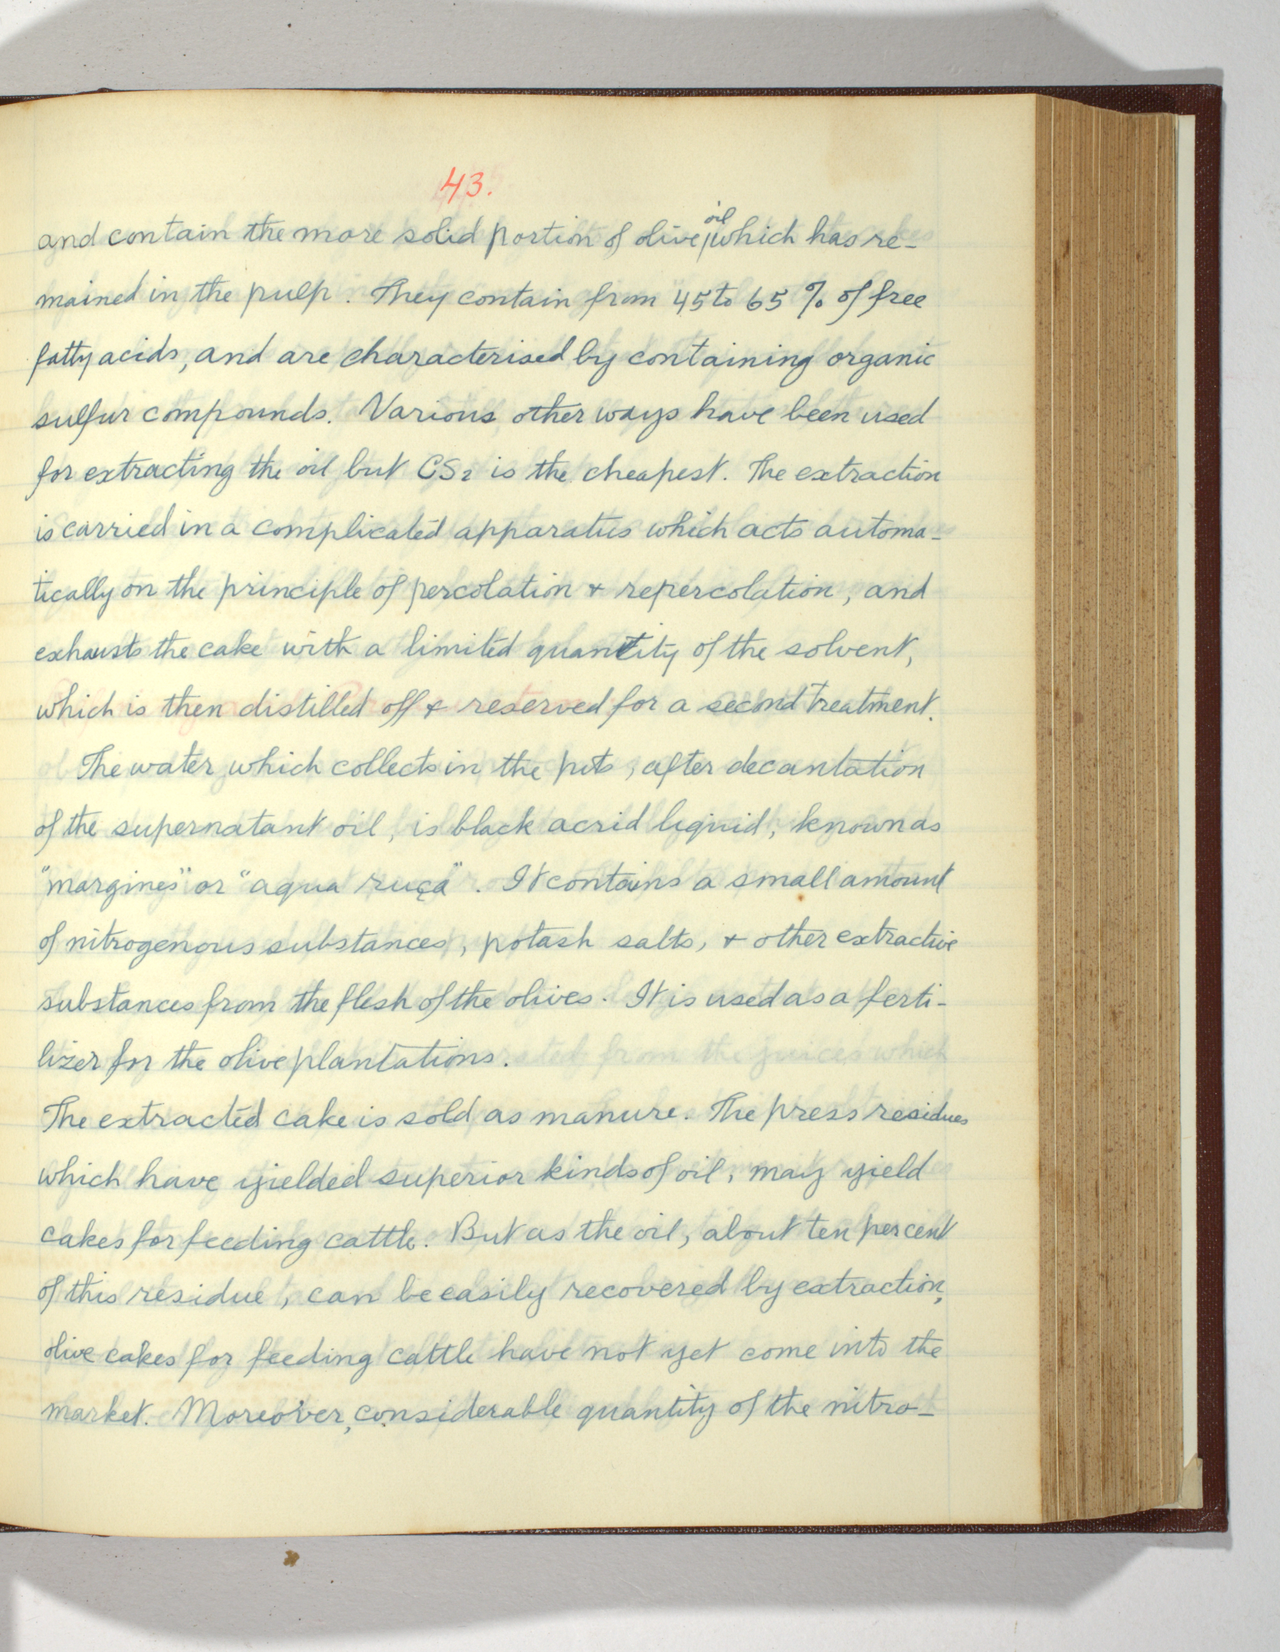 43.
and contain the more solid portion of olive oil which has re-
mained in the pulp. They contain from 45 to 65 % of free
fatty acids, and are characterised by containing organic
sulfur compounds. Various other ways have been used
for extracting the oil but CS2 is the cheapest. The extraction
is carried in a complicated apparatus which acts automa-
tically on the principle of percolation & repercolation, and
exhausts the cake with a limited quantity of the solvent,
which is then distilled off & reserved for a second treatment.
The water which collects in the pits, after decantation
of the supernatant oil, is black acrid liquid, known as
"margines" or "aqua ruça". It contains a small amount
of nitrogenous substances, potash salts, & other extractive
substances from the flesh of the olives. It is used as a ferti-
lizer for the olive plantations.
The extracted cake is sold as manure. The press residues
which have yielded superior kinds of oil, may yield
cakes for feeding cattle. But as the oil, about ten percent
of this residue, can be easily recovered by extraction,
olive cakes for feeding cattle have not yet come into the
market. Moreover, considerable quantity of the nitro-